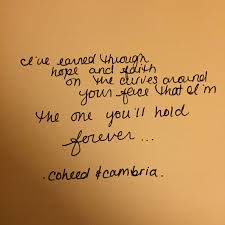 I've earned through
hope and faith
on the curves around
your face that I'm
the one you'll hold
forever...
.coheed & cambria.